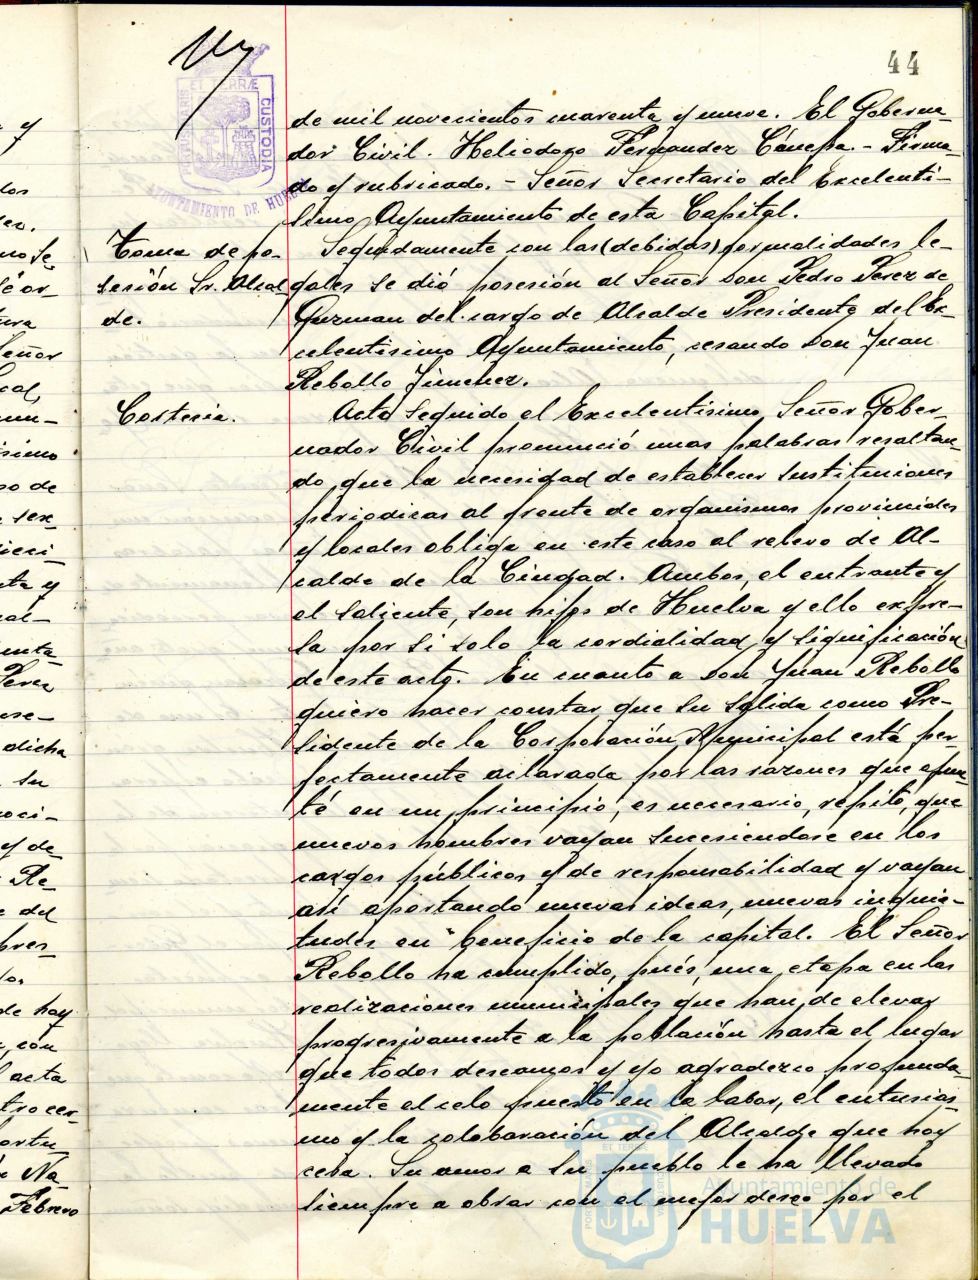 44
PORTUS MARIS
ET TERRÆ
CUSTODIA
AYUNTAMIENTO DE HUELVA
de mil novecientos cuarenta y nueve. El Goberna-
dor Civil. Heliodoro Fernandez Cánepa. - Firma-
do y rubricado. - Señor Secretario del Excelenti-
simo Ayuntamiento de esta Capital.
Toma de po-
sesión Sr. Alcal-
de.
Seguidamente con las (debidas) formalidades le-
gales se dió posesión al Señor Don Pedro Perez de
Guzman del cargo de Alcalde Presidente del Ex-
celentisimo Ayuntamiento, cesando Don Juan
Rebollo Jimenez.
Cortesia.
Acto seguido el Excelentisimo Señor Gober-
nador Civil pronunció unas palabras resaltan-
do que la necesidad de establecer sustituciones
periodicas al frente de organismos provinciales
y locales obliga en este caso al relevo de Al-
calde de la Ciudad. Ambos, el entrante y
el saliente, son hijos de Huelva y ello expre-
sa por si solo la cordialidad y significación
de este acto. En cuanto a Don Juan Rebollo
quiero hacer constar que su salida como Pre-
sidente de la Corporación Municipal está per-
fectamente aclarada por las razones que apun-
té en un principio, es necesario, repito, que
nuevos hombres vayan sucesiendose en los
cargos públicos y de responsabilidad y vayan
asi aportando nuevas ideas, nuevas inquie-
tudes en beneficio de la capital. El Señor
Rebollo ha cumplido, pués, una etapa en las
realizaciones municipales que han de elevar
progresivamente a la población hasta el lugar
que todos deseamos y yo agradezco profunda-
mente el celo puesto en la labor, el entusias-
mo y la colaboración del Alcalde que hoy
cesa. Su amor a su pueblo le ha llevado
siempre a obrar con el mejor deseo por el
Ayuntamiento de
HUELVA